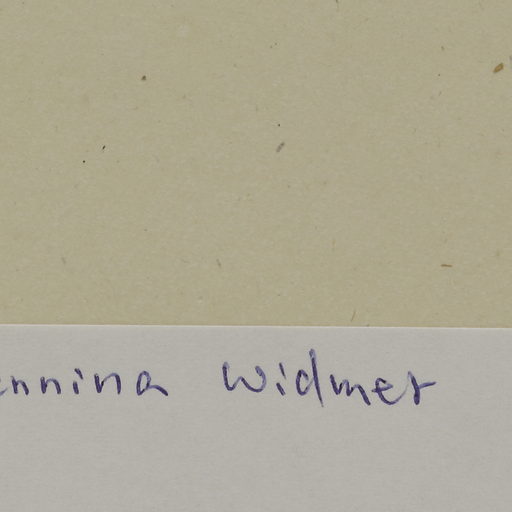 ennina Widmer